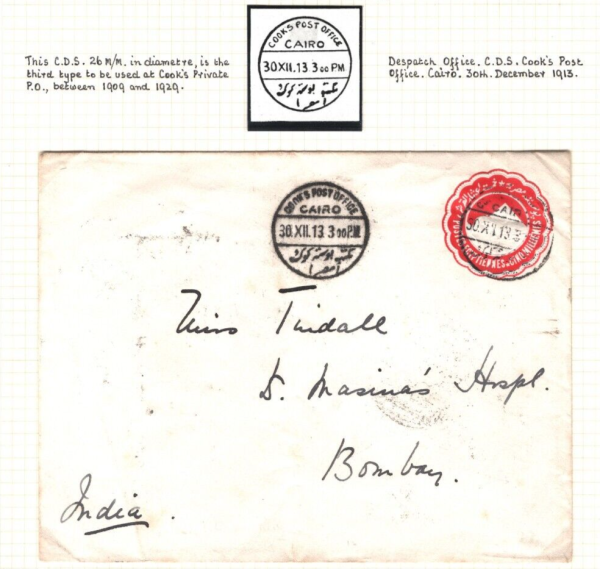 This C.D.S. 26 M/M. in diametre, is the
third type to be used at Cook's Private
P.O., between 1909 and 1929.
COOK'S POST OFFICE
CAIRO
30XII.13 3 00 PM
مكتب بوستة كوك
Despatch Office. C.D.S. Cook's Post
Office. Cairo. 30th. December 1913.
COOK'S POST OFFICE
CAIRO
30.XII.13 3 00 PM
مكتب بوستة كوك
CAIR
30.XII.13 3
Miss Tindall
D. Masina's Hospl.
Bombay.
India.